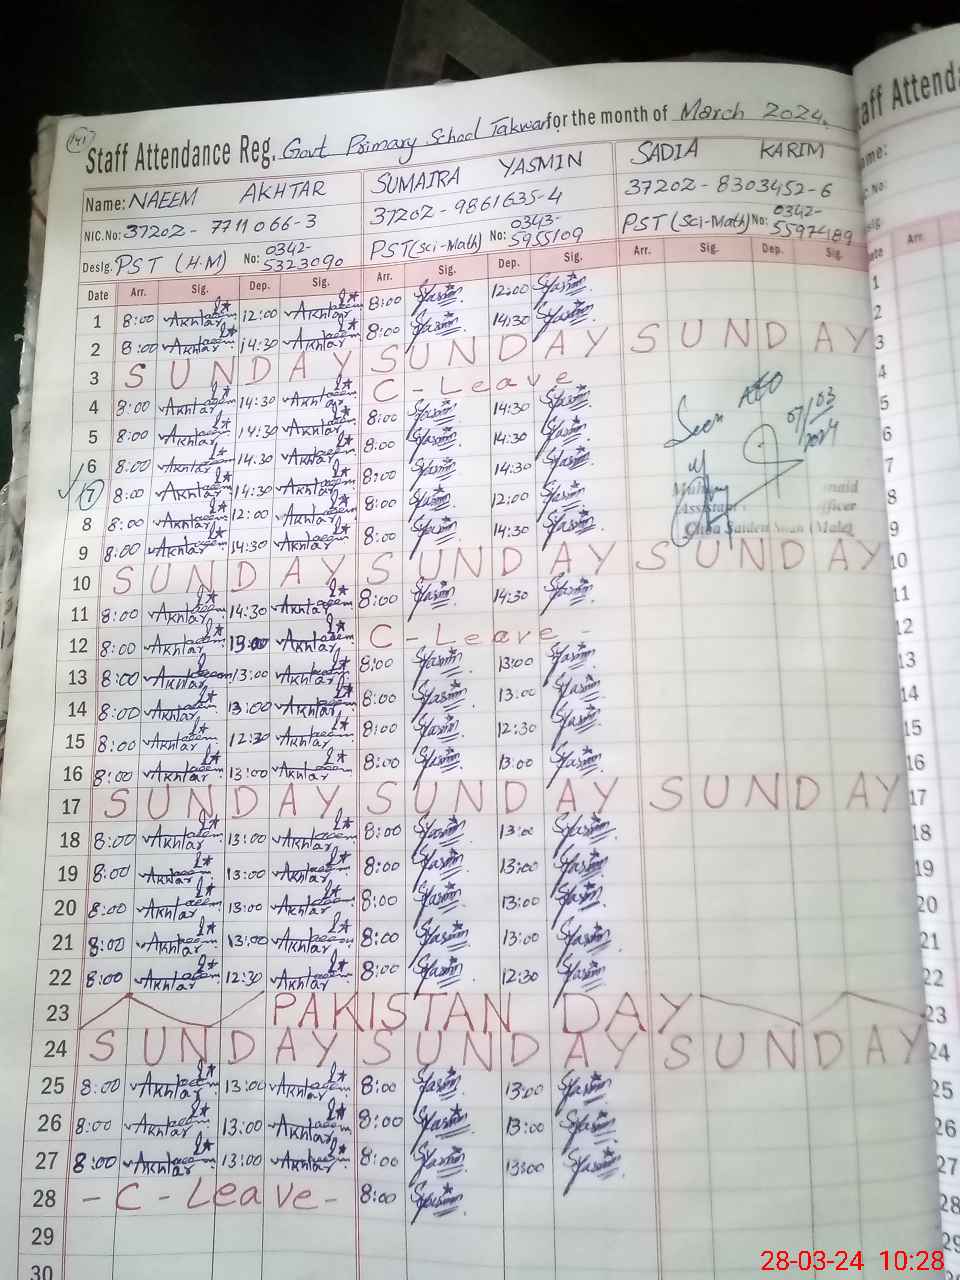 (141)
Staff Attendance Reg. Govt Primary School Takwar for the month of March 2024.
Name: NAEEM AKHTAR SUMAIRA YASMIN SADIA KARIM
NIC.No: 37202-7711066-3 37202-9861635-4 37202-8303452-6
Desig. PST (H.M) No: 0342-5323090 PST (Sci-Math) No: 0343-5955109 PST (Sci-Math) No: 0342-5597489
Date Arr. Sig. Dep. Sig. Arr. Sig. Dep. Sig. Arr. Sig. Dep. Sig.
1 8:00 Akhtar 12:00 Akhtar 8:00 Yasmin 12:00 Yasmin
2 8:00 Akhtar 14:30 Akhtar 8:00 Yasmin 14:30 Yasmin
3 SUNDAY SUNDAY SUNDAY
4 8:00 Akhtar 14:30 Akhtar C-Leave
5 8:00 Akhtar 14:30 Akhtar 8:00 Yasmin 14:30 Yasmin
6 8:00 Akhtar 14:30 Akhtar 8:00 Yasmin 14:30 Yasmin
7 8:00 Akhtar 14:30 Akhtar 8:00 Yasmin 14:30 Yasmin
8 8:00 Akhtar 12:00 Akhtar 8:00 Yasmin 12:00 Yasmin
9 8:00 Akhtar 14:30 Akhtar 8:00 Yasmin 14:30 Yasmin
Seen AEO
07/03
2024
(Male)
10 SUNDAY SUNDAY SUNDAY
11 8:00 Akhtar 14:30 Akhtar 8:00 Yasmin 14:30 Yasmin
12 8:00 Akhtar 13:00 Akhtar C-Leave-
13 8:00 Akhtar 13:00 Akhtar 8:00 Yasmin 13:00 Yasmin
14 8:00 Akhtar 13:00 Akhtar 8:00 Yasmin 13:00 Yasmin
15 8:00 Akhtar 12:30 Akhtar 8:00 Yasmin 12:30 Yasmin
16 8:00 Akhtar 13:00 Akhtar 8:00 Yasmin 13:00 Yasmin
17 SUNDAY SUNDAY SUNDAY
18 8:00 Akhtar 13:00 Akhtar 8:00 Yasmin 13:00 Yasmin
19 8:00 Akhtar 13:00 Akhtar 8:00 Yasmin 13:00 Yasmin
20 8:00 Akhtar 13:00 Akhtar 8:00 Yasmin 13:00 Yasmin
21 8:00 Akhtar 13:00 Akhtar 8:00 Yasmin 13:00 Yasmin
22 8:00 Akhtar 12:30 Akhtar 8:00 Yasmin 12:30 Yasmin
23 PAKISTAN DAY
24 SUNDAY SUNDAY SUNDAY
25 8:00 Akhtar 13:00 Akhtar 8:00 Yasmin 13:00 Yasmin
26 8:00 Akhtar 13:00 Akhtar 8:00 Yasmin 13:00 Yasmin
27 8:00 Akhtar 13:00 Akhtar 8:00 Yasmin 13:00 Yasmin
28 -C-Leave- 8:00 Yasmin
29
30
28-03-24 10:28